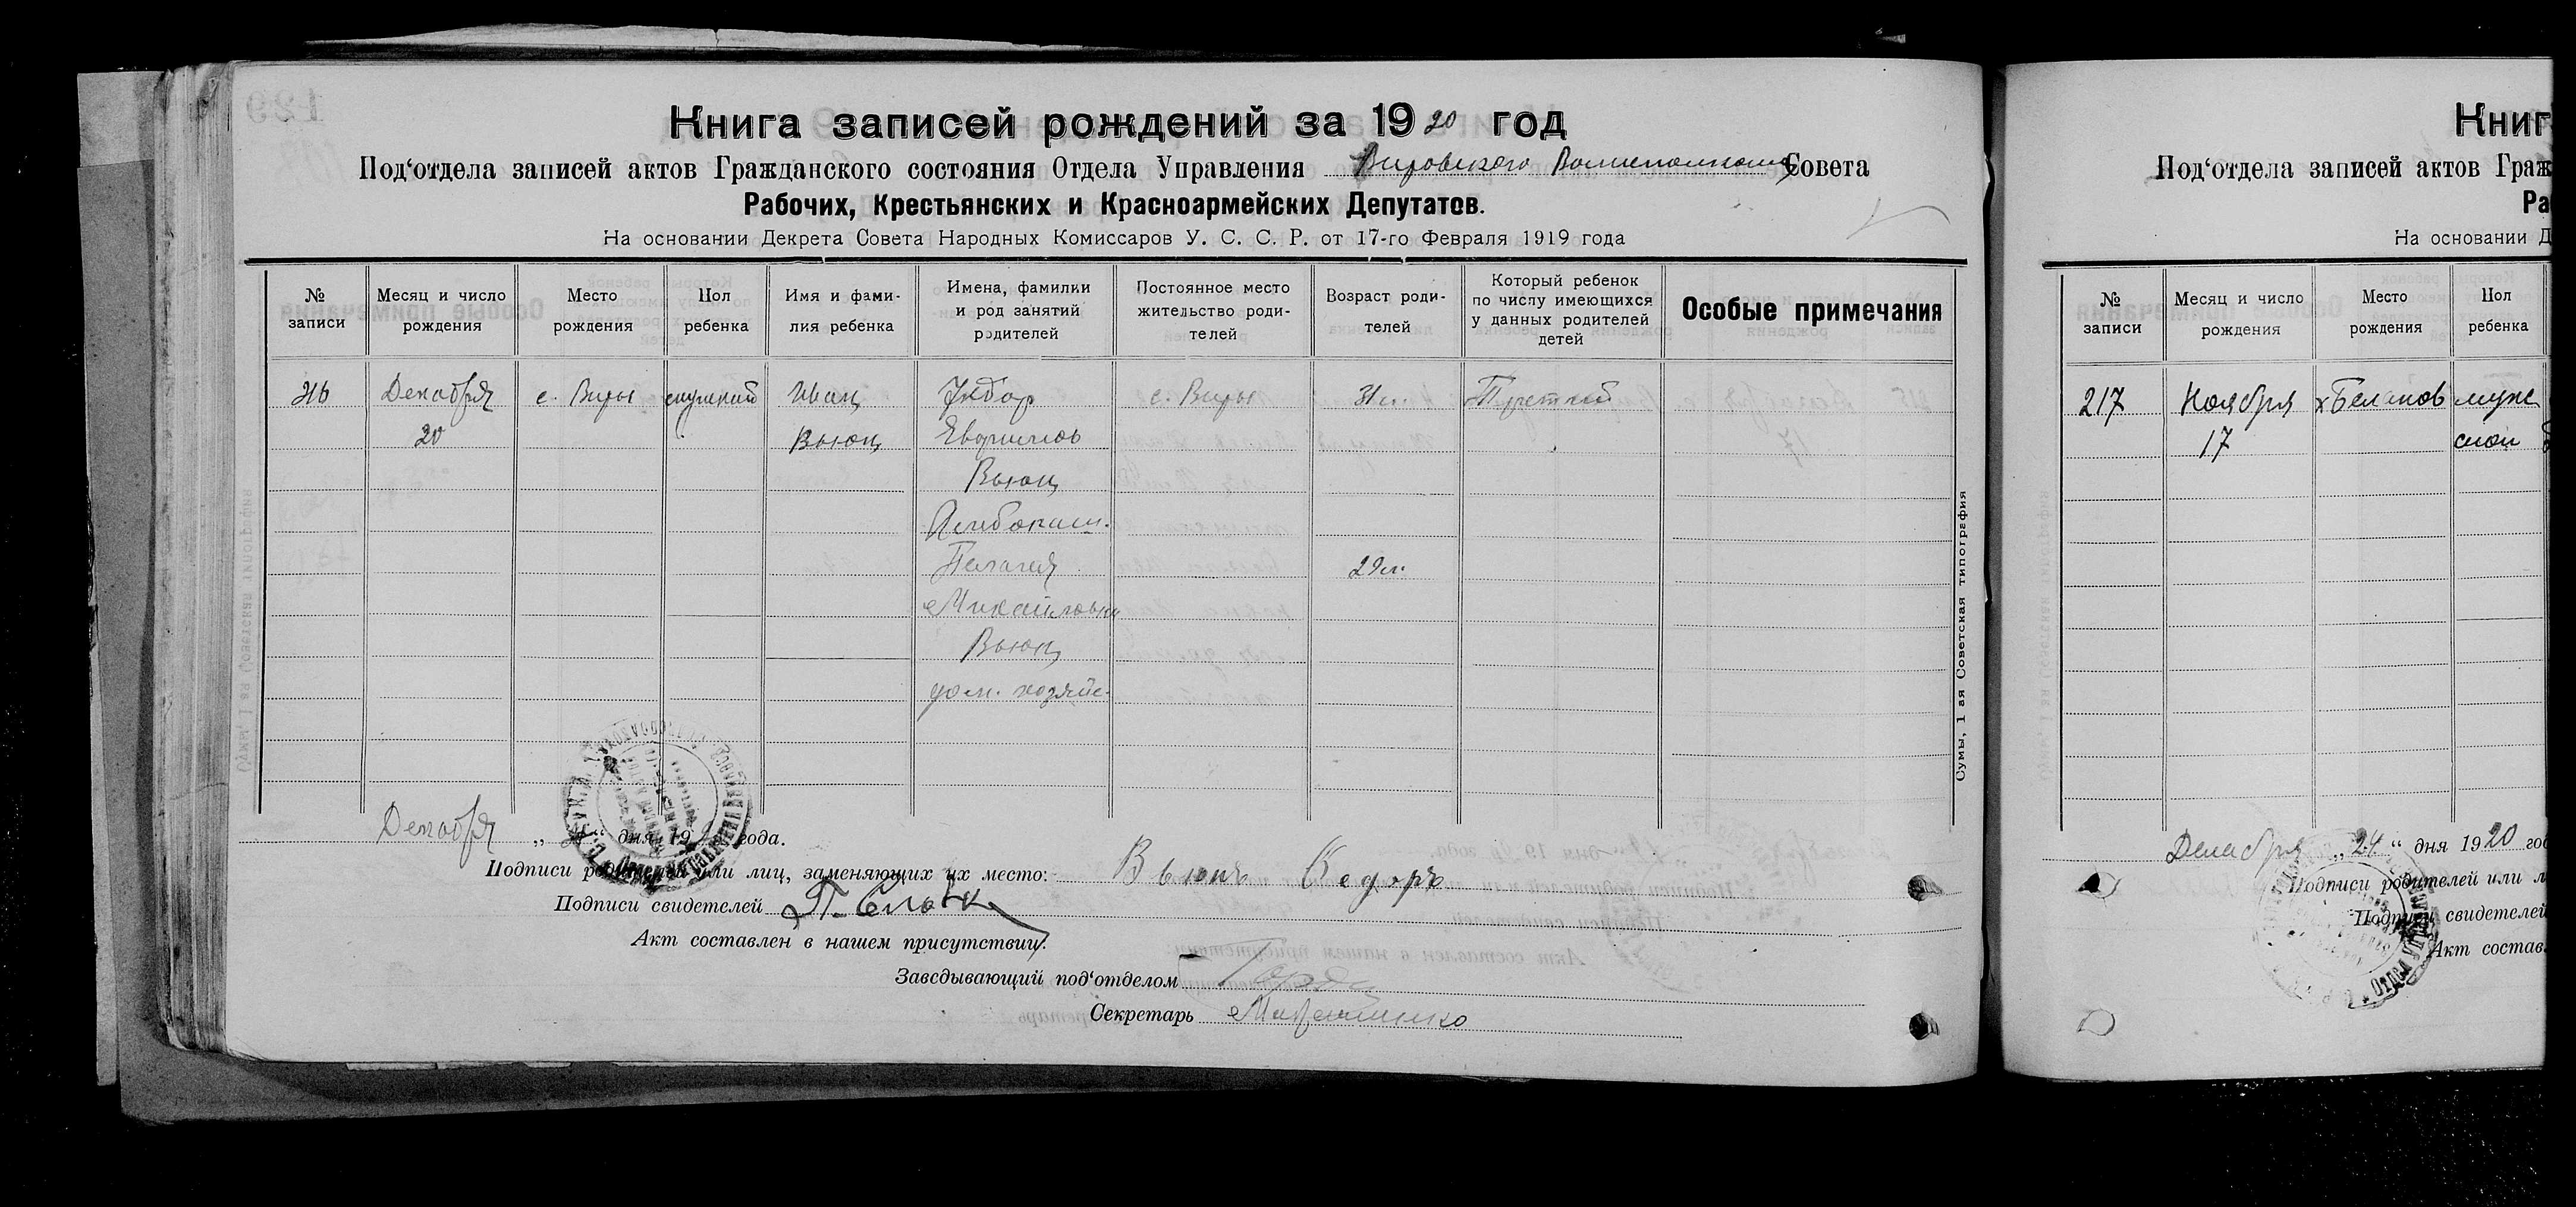 Книга записей рождений за 1920 год
Под‘отдела записей актов Гражданского состояния Отдела Управления Вировского Совета
Рабочих, Крестьянских и Красноармейских Депутатов.
На основании Декрета Совета Народных Комиссаров У. С. С. Р. от 17-го Февраля 1919 года
№ записи
Месяц и число рождения
Место рождения
Пол ребенка
Имя и фами-
лия ребенка
Имена, фамилии
и род занятий
родителей
Постоянное место
жительство роди-
телей
Возраст роди-
телей
Который ребенок
по числу имеющихся
у данных родителей
детей
Особые примечания
216 Декабря с. Виры мужской Иван Федор с. Виры 31 л. Третий
20 Вьюн
Вьюн
Хлебопаш.
Пелагея 29 л.
Михайловна
Вьюн
дом. хозяйс.
Сумы, 1 ая Советская типография
Декабря дня 19 года.
Подписи родителей или лиц, заменяющих их место: Вьюнъ Федоръ
Подписи свидетелей П.
Акт составлен в нашем присутствии:
Заведывающий под‘отделом
Секретарь
Книг
Под‘отдела записей актов Граж
Ра
На основании Д
№ записи
Месяц и число рождения
Место рождения
Пол ребенка
217 Ноября х Беланов мужс
17 ской
Декабря „24“ дня 1920 год
Подписи родителей или л
Подписи свидетелей
Акт состав